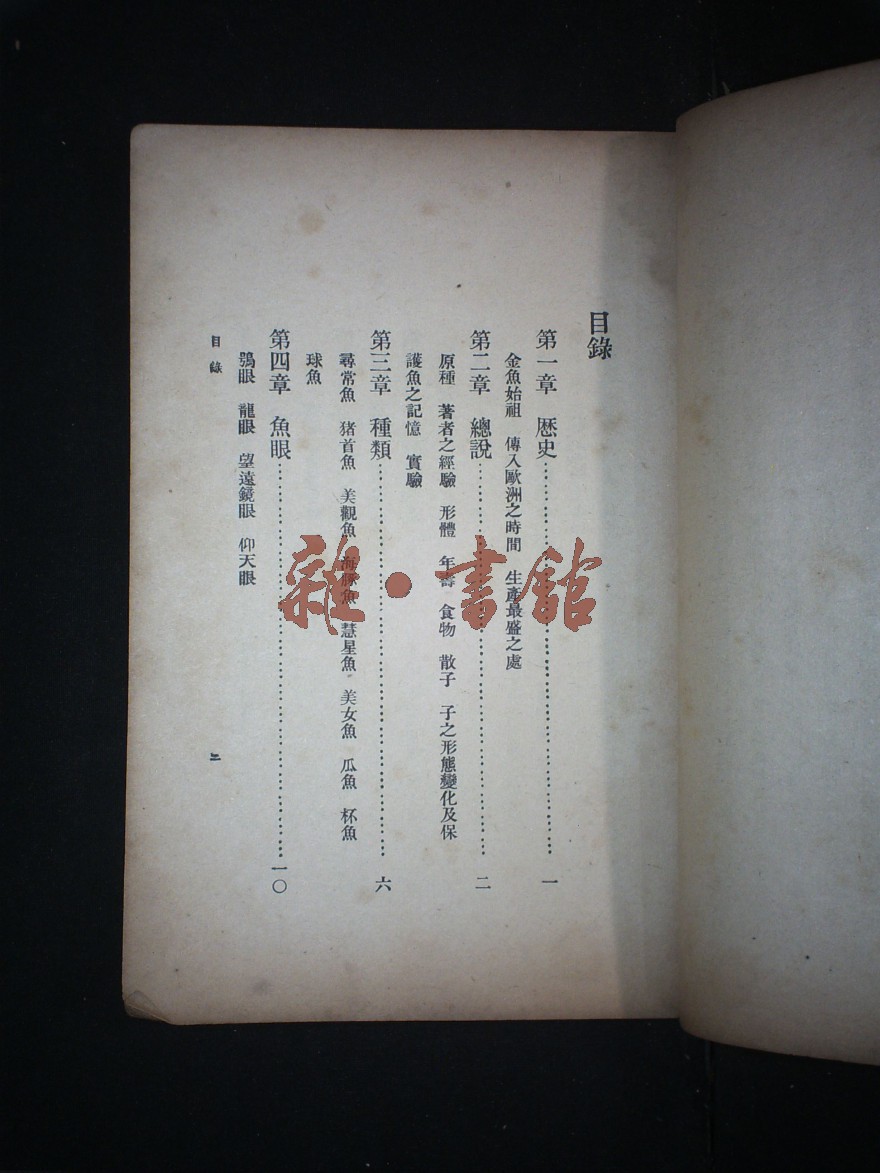 目錄
第一章　歷史……………………一
金魚始祖　傳入歐洲之時間　生產最盛之處
第二章　總說……………………二
原種　著者之經驗　形體　年壽　食物　散子　子之形態變化及保
護魚之記憶　實驗
第三章　種類……………………六
尋常魚　猪首魚　美觀魚　海豚魚　慧星魚　美女魚　瓜魚　杯魚
球魚
第四章　魚眼……………………一〇
鴞眼　龍眼　望遠鏡眼　仰天眼
目錄
雜·書館